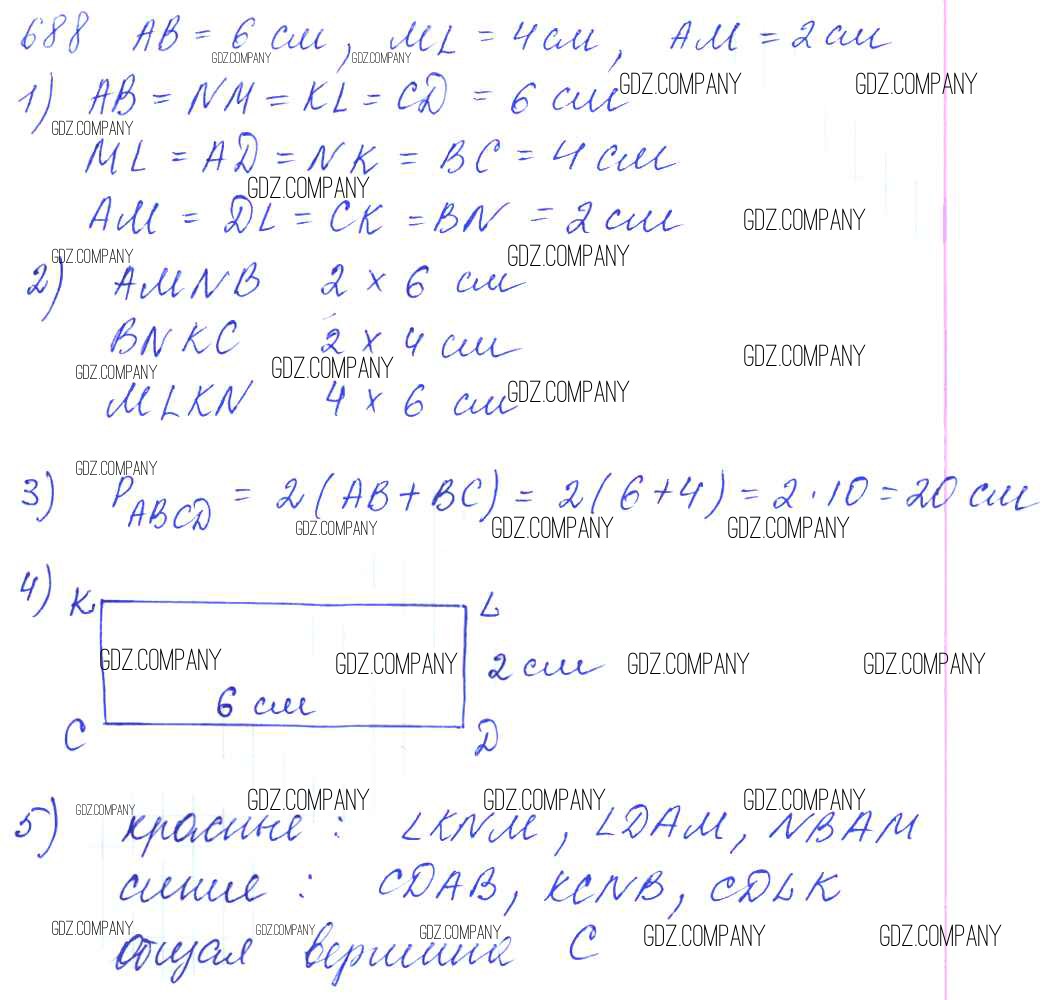 688 AB = 6 см, ML = 4 см, AM = 2 см
GDZ.COMPANY GDZ.COMPANY
1) AB = NM = KL = CD = 6 см GDZ.COMPANY GDZ.COMPANY
GDZ.COMPANY
ML = AD = NK = BC = 4 см
GDZ.COMPANY
AM = DL = CK = BN = 2 см GDZ.COMPANY
GDZ.COMPANY GDZ.COMPANY
2) AMNB 2 × 6 см
BNKC 2 × 4 см GDZ.COMPANY
GDZ.COMPANY GDZ.COMPANY
MLKN 4 × 6 см GDZ.COMPANY
GDZ.COMPANY
3) P ABCD = 2(AB + BC) = 2(6+4) = 2·10 = 20 см
GDZ.COMPANY GDZ.COMPANY GDZ.COMPANY
4) K L
GDZ.COMPANY GDZ.COMPANY 2 см GDZ.COMPANY GDZ.COMPANY
6 см
C D
GDZ.COMPANY GDZ.COMPANY GDZ.COMPANY GDZ.COMPANY
5) красные: LKNM, LDAM, NBAM
синие: CDAB, KCNB, CDLK
GDZ.COMPANY GDZ.COMPANY GDZ.COMPANY GDZ.COMPANY GDZ.COMPANY
Общая вершина C